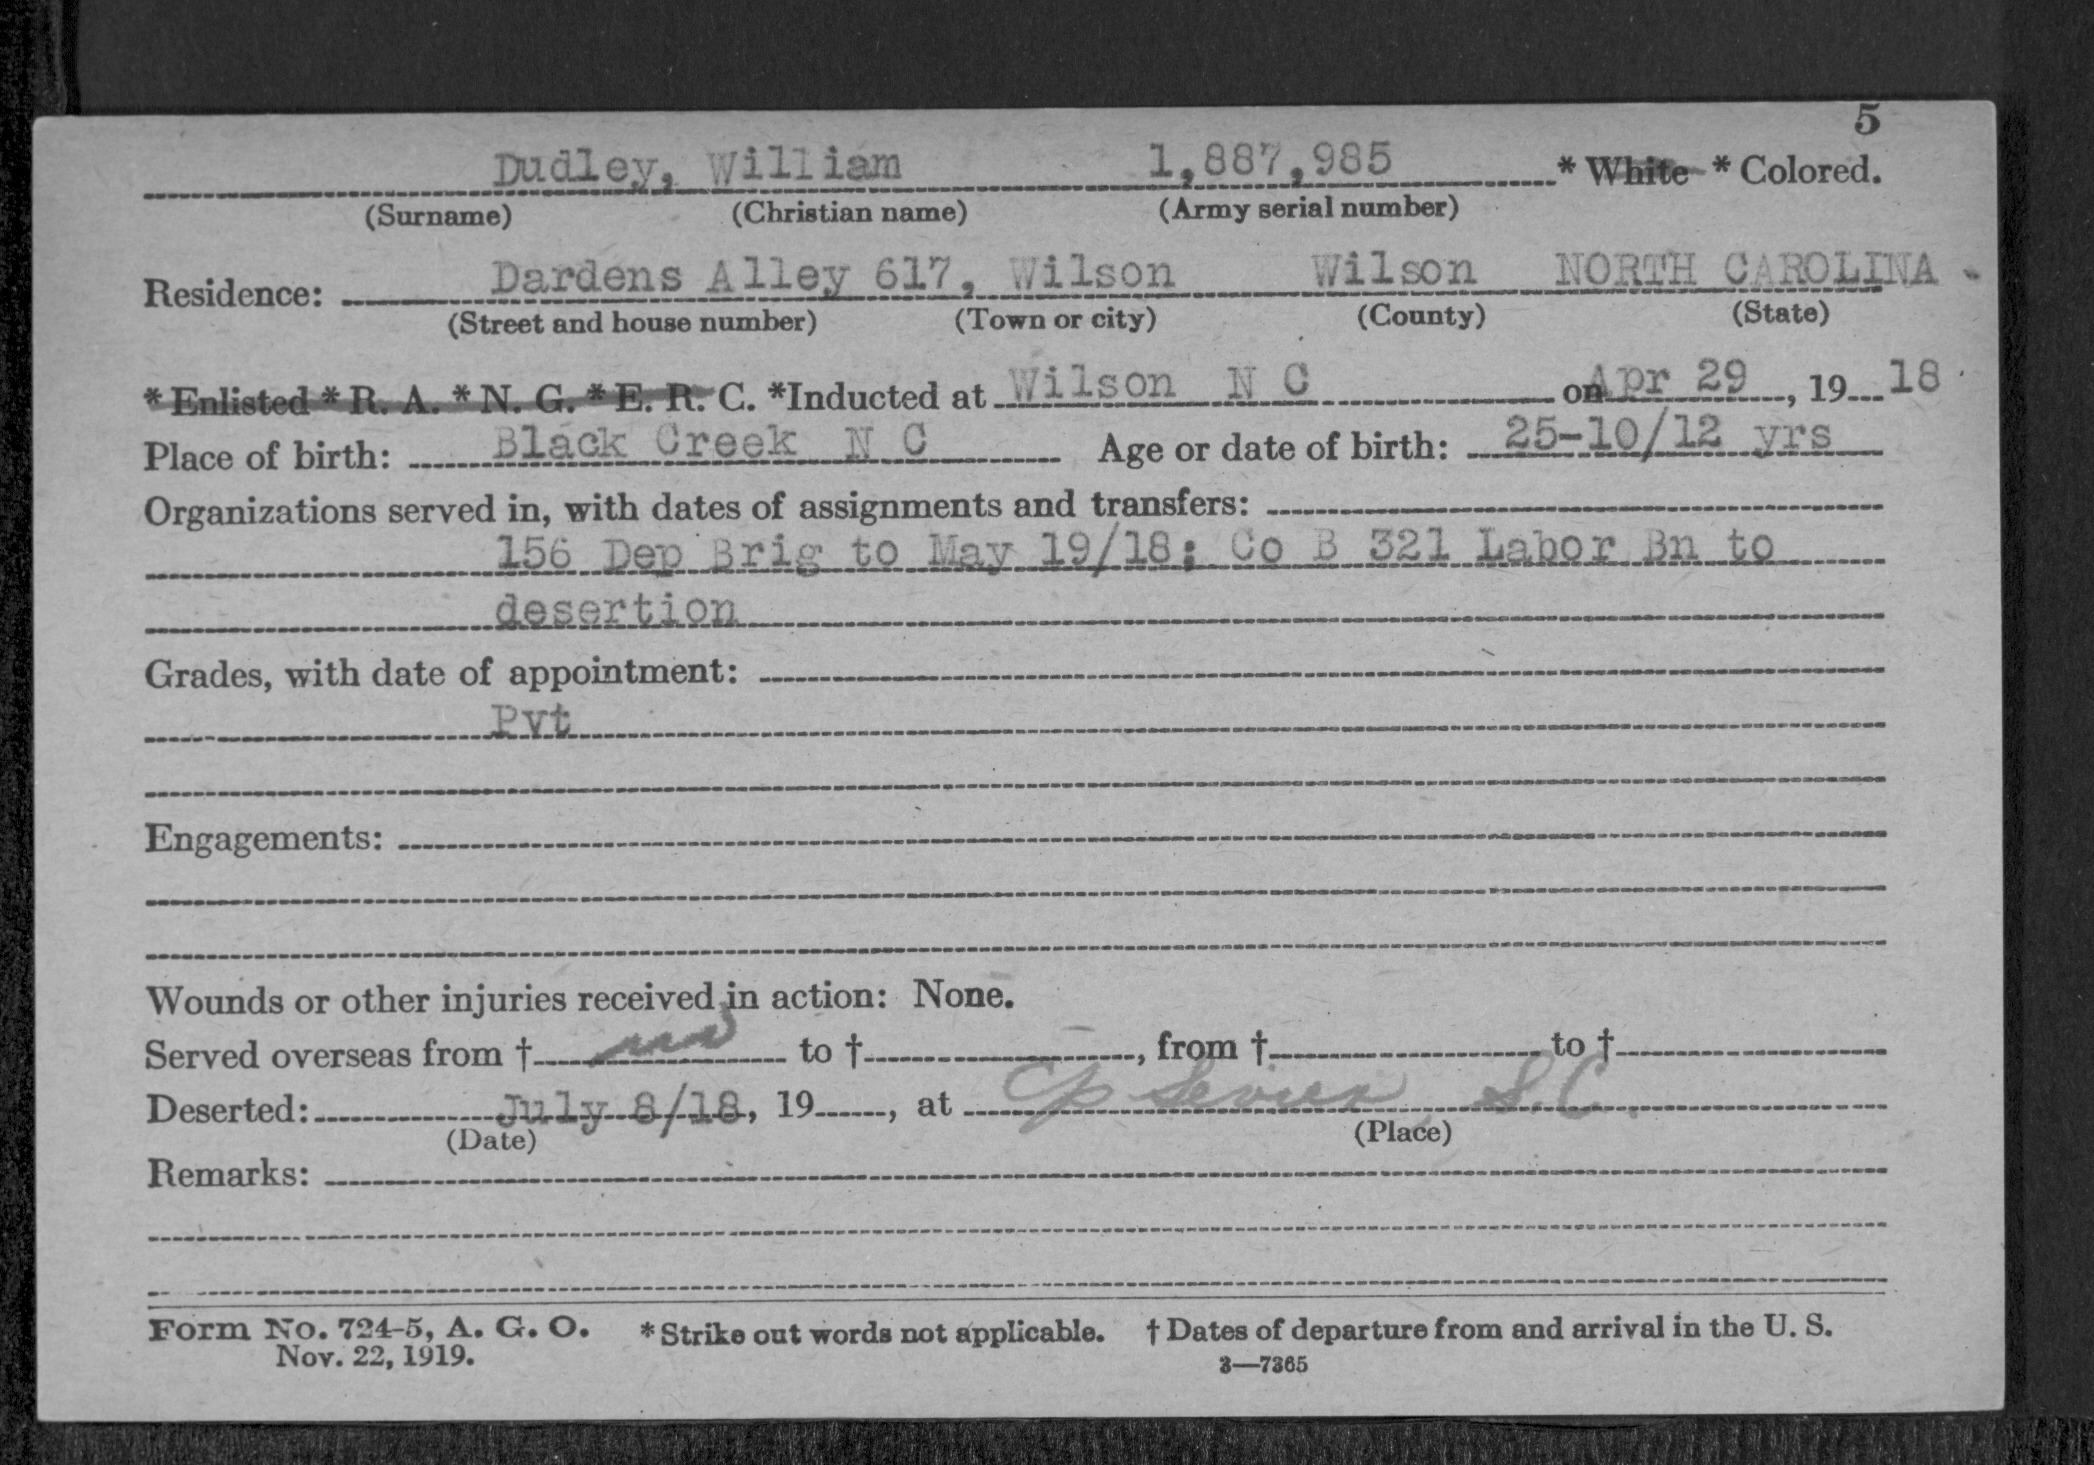 5
Dudley, William 1,887,985 * White * Colored.
(Surname) (Christian name) (Army serial number)
Residence: Dardens Alley 617, Wilson Wilson NORTH CAROLINA
(Street and house number) (Town or city) (County) (State)
* Enlisted * R. A. * N. G. * E. R. C. *Inducted at Wilson N C on Apr 29, 19 18
Place of birth: Black Creek N C Age or date of birth: 25-10/12 yrs
Organizations served in, with dates of assignments and transfers:
156 Dep Brig to May 19/18; Co B 321 Labor Bn to
desertion
Grades, with date of appointment:
Pvt
Engagements:
Wounds or other injuries received in action: None.
Served overseas from † no to †, from † to †
Deserted: July 8/18, 19, at Cp Sevier, S.C.
(Date) (Place)
Remarks:
Form No. 724-5, A. G. O. * Strike out words not applicable. † Dates of departure from and arrival in the U. S.
Nov. 22, 1919. 3—7365